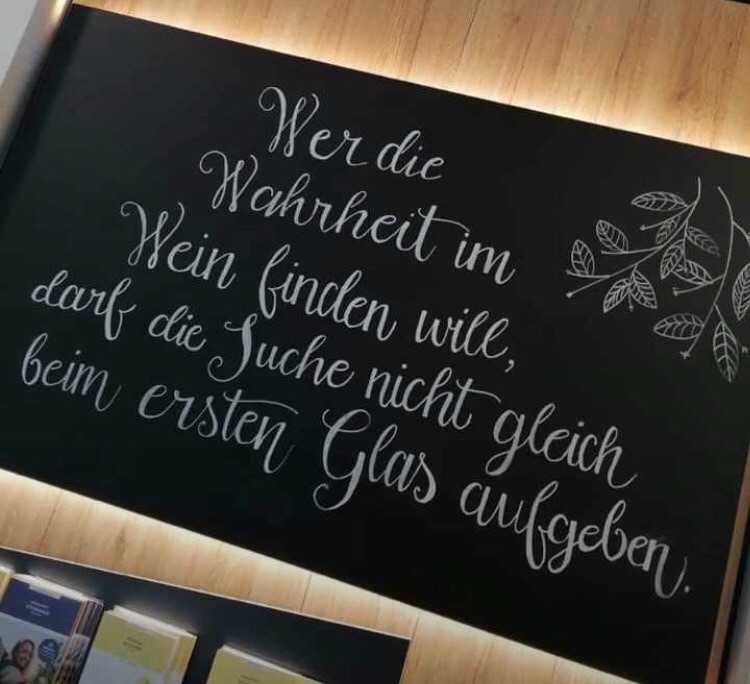 Wer die
Wahrheit im
Wein finden will,
darf die Suche nicht gleich
beim ersten Glas aufgeben.